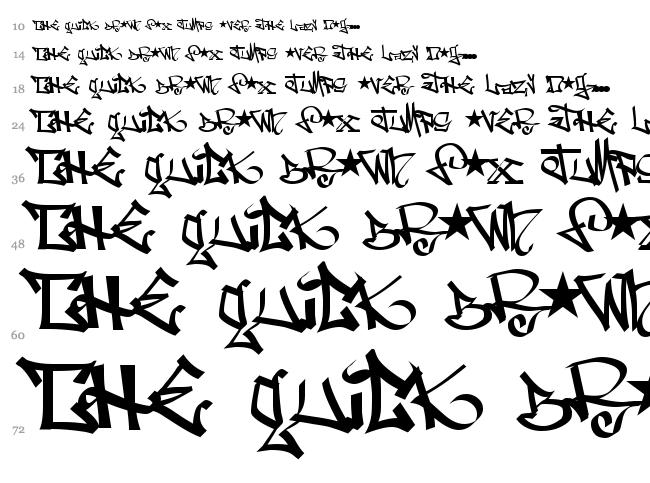 10 the quick br★wn f★x jumps ★ver the lazy d★g...
14 the quick br★wn f★x jumps ★ver the lazy d★g...
18 the quick br★wn f★x jumps ★ver the lazy d★g...
24 the quick br★wn f★x jumps ★ver the l
36 the quick br★wn f★x jumps
48 the quick br★wn f★x
60 the quick br★wn
72 the quick br★